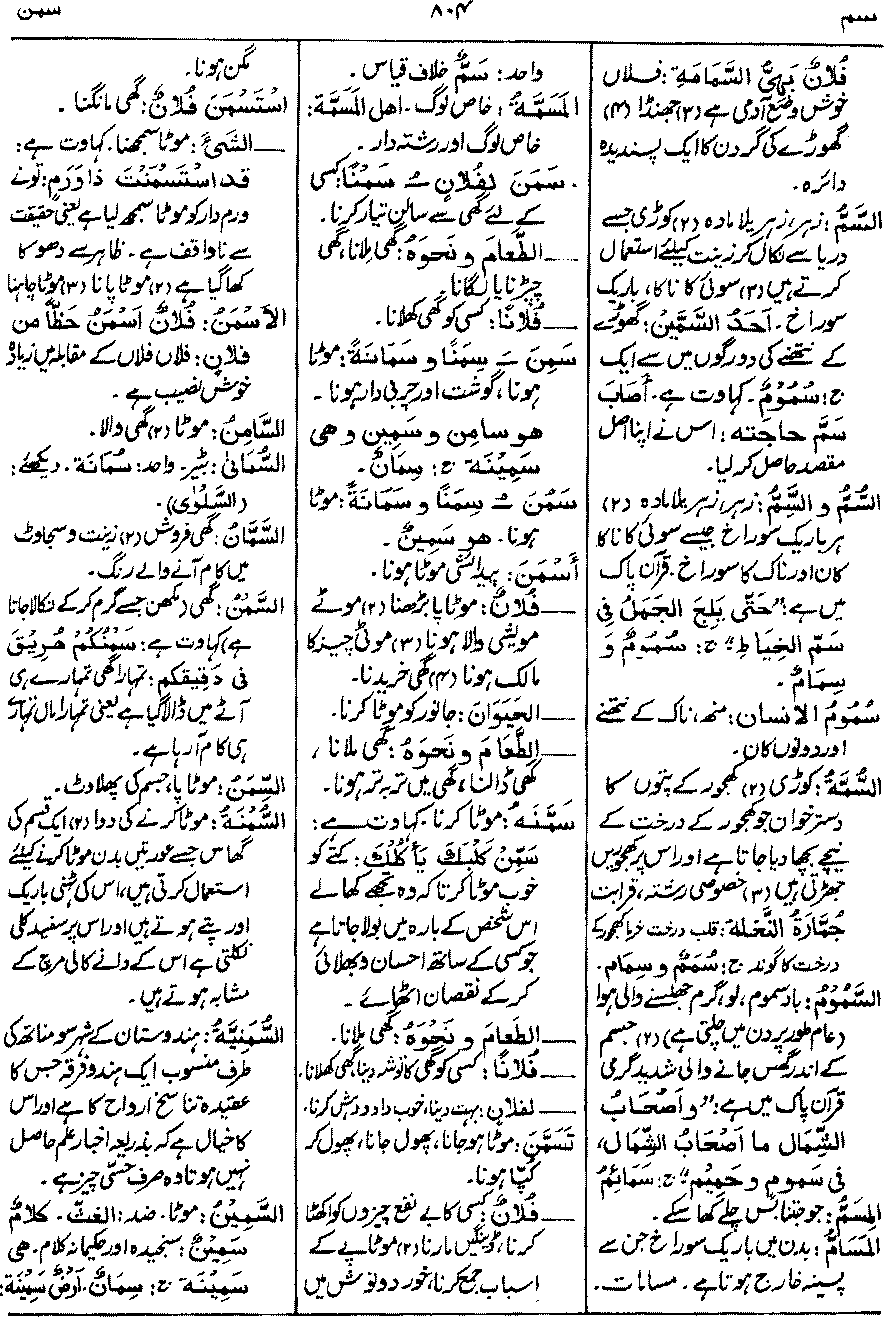 سم
۸۰۴
سمن
فُلَانٌ بَهِيُّ السَّمَامَةِ: فلاں
خوش وضع آدمی ہے (۳) جھنڈا (۴)
گھوڑے کی گردن کا ایک پسندیدہ
دائرہ۔
السَّمُّ: زہر، زہریلا مادہ (۲) کوڑی جسے
دریا سے نکال کر زینت کیلئے استعمال
کرتے ہیں (۳) سوئی کا ناکا، باریک
سوراخ۔ اَحَدُ السَّمَّيْنِ: گھوڑے
کے نتھنے کی دو رگوں میں سے ایک
ج: سُمُوْمٌ۔ کہاوت ہے۔ أَصَابَ
سَمَّ حاجتِه: اس نے اپنا اصل
مقصد حاصل کر لیا۔
السُّمُّ و السِّمُّ: زہر، زہریلا مادہ (۲)
ہر باریک سوراخ جیسے سوئی کا ناکا
کان اور ناک کا سوراخ۔ قرآن پاک
میں ہے: "حَتّٰى يَلِجَ الجَمَلُ فِي
سَمِّ الخِيَاطِ" ج: سُمُوْمٌ وَ
سِمَامٌ۔
سُمُوْمُ الانسان: منھ، ناک کے نتھنے
اور دونوں کان۔
السُّمَّةُ: کوڑی (۲) کھجور کے پتوں کا
دسترخوان جو کھجور کے درخت کے
نیچے بچھا دیا جاتا ہے اور اس پر کھجوریں
جھڑتی ہیں (۳) خصوصی رشتہ، قرابت
جُمَّارَةُ النَّخْلة: قلب درخت خرما کھجور کے
درخت کا گوند ج: سُمَمٌ و سِمام۔
السَّمُوْمُ: بادِ سموم، لو، گرم جھلسنے والی ہوا
(عام طور پر دن میں چلتی ہے) (۲) جسم
کے اندر گھس جانے والی شدید گرمی
قرآن پاک میں ہے: "و اَصْحَابُ
الشِّمَال ما اَصْحَابُ الشِّمَال،
فى سَمومٍ و حَمِيْمٍ" ج: سَمَائِمُ
المِسَمُّ: جو جتنا بس چلے کھا سکے۔
المَسَامُّ: بدن میں باریک سوراخ جن سے
پسینہ خارج ہوتا ہے۔ مسامات۔
واحد: سَمٌّ خلاف قیاس۔
المَسَمَّةُ: خاص لوگ۔ اهل المَسَمَّة:
خاص لوگ اور رشتہ دار۔
سَمَنَ لِفُلَانٍ ـُ سَمْنًا: کسی
کے لئے گھی سے سالن تیار کرنا۔
ــــ الطَّعَامَ و نَحوَهُ: گھی ملانا، گھی
چپڑنا یا لگانا۔
ــــ فُلَانًا: کسی کو گھی کھلانا۔
سَمِنَ ـَ سِمَنًا و سَمَانَةً: موٹا
ہونا، گوشت اور چربی دار ہونا۔
هو سامن و سَمِين و هى
سَمِيْنَة ج: سِمَانٌ۔
سَمُنَ ـُ سِمَنًا و سَمَانَةً: موٹا
ہونا۔ هو سَمِينٌ۔
أَسْمَنَ: پیدائشی موٹا ہونا۔
ــــ فُلَانٌ: موٹاپا بڑھنا (۲) موٹے
مویشی والا ہونا (۳) موٹی چیز کا
مالک ہونا (۴) گھی خریدنا۔
ــــ الحَيَوَانَ: جانور کو موٹا کرنا۔
ــــ الطَّعَامَ و نَحْوَهُ: گھی ملانا،
گھی ڈالنا، گھی میں تر بہ تر ہونا۔
سَمَّنَه: موٹا کرنا۔ کہاوت ہے:
سَمِّنْ كَلْبَكَ يَأْكُلْكَ: کتّے کو
خوب موٹا کرتا کہ وہ تجھے کھا لے
اس شخص کے بارہ میں بولا جاتا ہے
جو کسی کے ساتھ احسان و بھلائی
کر کے نقصان اٹھائے۔
ــــ الطَّعَامَ و نَحْوَهُ: گھی ملانا۔
ــــ فُلَانًا: کسی کو گھی کا توشہ دینا، گھی کھلانا۔
ــــ لفلانٍ: بہت دینا، خوب داد و دہش کرنا۔
تَسَمَّنَ: موٹا ہو جانا، پھول جانا، پھول کر
کپّا ہونا۔
ــــ فُلَانٌ: کسی کا بے نفع چیزوں کو اکٹھا
کرنا، ڈینگیں مارنا (۲) موٹاپے کے
اسباب جمع کرنا، خورد و نوش میں
مگن ہونا۔
اسْتَسْمَنَ فُلَانٌ: گھی مانگنا۔
ــــ الشَّيْءَ: موٹا سمجھنا۔ کہاوت ہے:
قد استَسْمَنْتَ ذا وَرَمٍ: تونے
ورم دار کو موٹا سمجھ لیا ہے یعنی حقیقت
سے ناواقف ہے۔ ظاہر سے دھوکا
کھا گیا ہے (۲) موٹا پانا (۳) موٹا چاہنا
الاَسْمَنُ: فُلَانٌ اَسْمَنُ حَظًّا مِن
فُلَانٍ: فلاں فلاں کے مقابلہ میں زیادہ
خوش نصیب ہے۔
السَّامِنُ: موٹا (۲) گھی والا۔
السُّمَانٰى: بٹیر۔ واحد: سُمَانَة۔ دیکھئے:
(السَّلْوٰى)۔
السَّمَّانُ: گھی فروش (۲) زینت و سجاوٹ
میں کام آنے والے رنگ۔
السَّمْنُ: گھی (مکھن جسے گرم کر کے نکالا جاتا
ہے) کہاوت ہے: سَمْنُكُمْ هُرِيْقَ
فى دَقِيقِكم: تمہارا گھی تمہارے ہی
آٹے میں ڈالا گیا ہے یعنی تمہارا مال تمہارے
ہی کام آ رہا ہے۔
السِّمَنُ: موٹاپا، جسم کی پھلاوٹ۔
السُّمْنَةُ: موٹا کرنے کی دوا (۲) ایک قسم کی
گھاس جسے عورتیں بدن موٹا کرنے کیلئے
استعمال کرتی ہیں، اس کی ٹہنی باریک
اور پتے ہوتے ہیں اور اس پر سفید کلی
نکلتی ہے اس کے دانے کالی مرچ کے
مشابہ ہوتے ہیں۔
السُّمَنِيَّةُ: ہندوستان کے شہر سومناتھ کی
طرف منسوب ایک ہندو فرقہ جس کا
عقیدہ تناسخ ارواح کا ہے اور اس
کا خیال ہے کہ بذریعہ اخبار علم حاصل
نہیں ہوتا وہ صرف حسّی چیز ہے۔
السَّمِيْنُ: موٹا۔ ضد: الغَثّ۔ كلامٌ
سَمِينٌ: سنجیدہ اور حکیمانہ کلام۔ هى
سَمِيْنَة ج: سِمَانٌ۔ اَرْضٌ سَمِيْنَة: